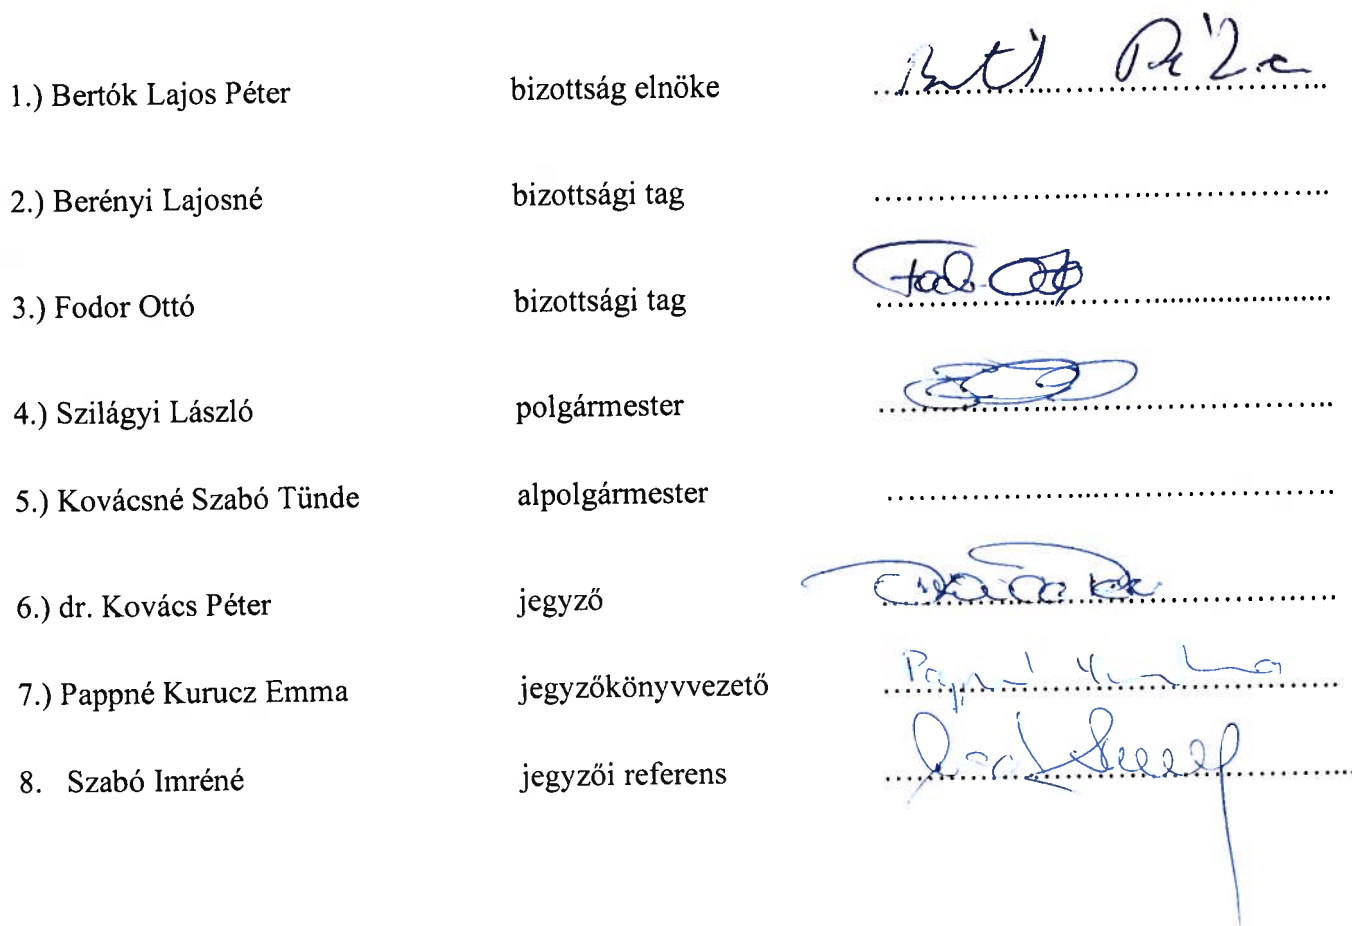 1.) Bertók Lajos Péter bizottság elnöke ........................................
2.) Berényi Lajosné bizottsági tag ........................................
3.) Fodor Ottó bizottsági tag ........................................
4.) Szilágyi László polgármester ........................................
5.) Kovácsné Szabó Tünde alpolgármester ........................................
6.) dr. Kovács Péter jegyző ........................................
7.) Pappné Kurucz Emma jegyzőkönyvvezető ........................................
8. Szabó Imréné jegyzői referens ........................................